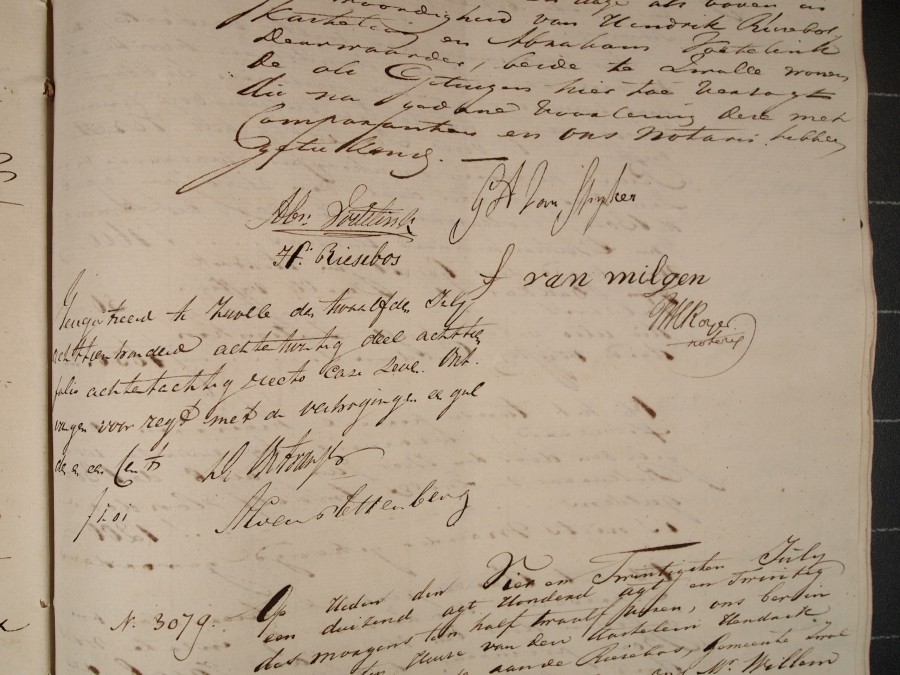 dage als boven in
woordigheid van Hendrik Riesebos
Kastelein en Abraham Doetelink
Deurwaarder, beide te Zwolle wonen
de als Getuigen hier toe verzogt
die na gedane voorlezing deze met
Comparanten en ons Notaris hebben
getekend. —
Abr. Doetelink
G A Van Spijker
H. Riesebos
J van milgen
Royer
notaris
te Zwolle den twaalfden July
achttienhonderd achtentwintig deel achttien
folio achtentachtig recto case zeven Ont
vangen voor regt met de verhogingen een gul
den een Cent
f 1.01
N. 3079.
Op Heden den Vier en Twintigsten July
een duizend agt Honderd agt en Twintig
des morgens ten half twaalf uren, ons bevin
ten Huize van den Kastelein Hendrik
Riesebos, Gemeente Zwol
ons Mr. Willem